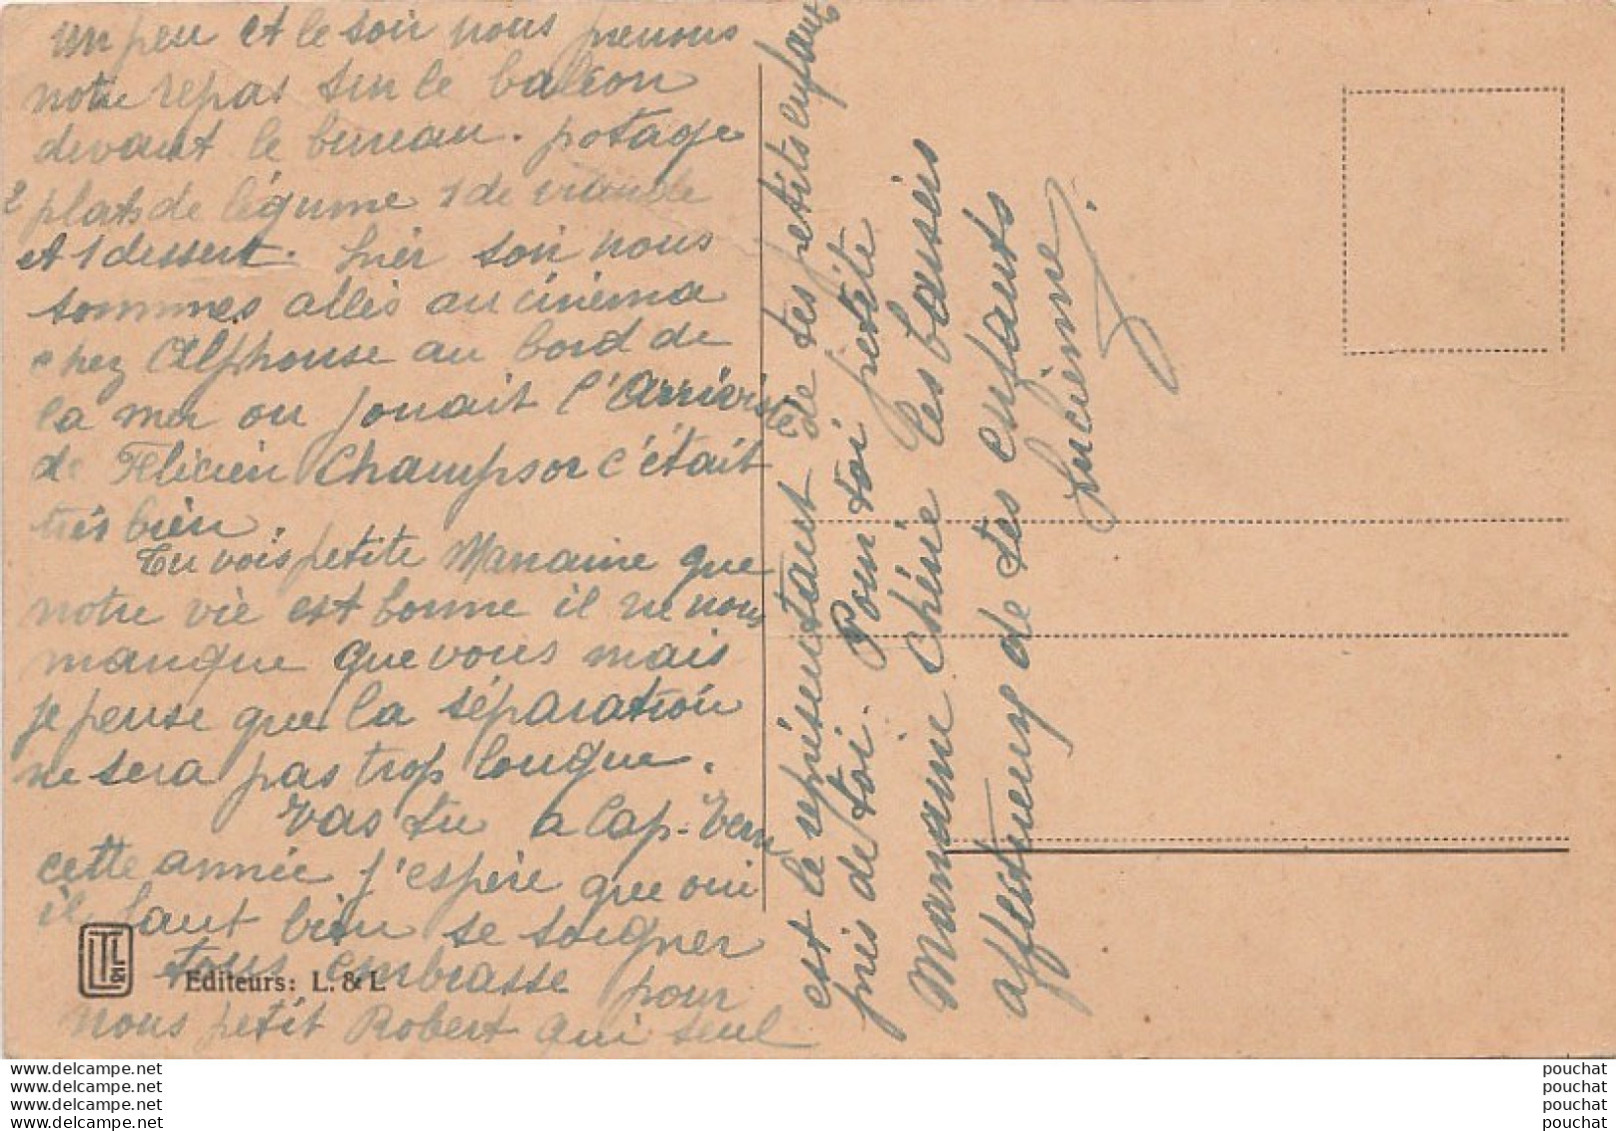 un peu et le soir nous prenons
notre repas sur le balcon
devant le bureau. potage
2 plats de légume 1 de viande
et 1 dessert. hier soir nous
sommes allés au cinéma
chez Alphonse au bord de
la mer ou jouait l'Arriviste
de Félicien Champsor c'était
très bien.
Tu vois petite Mamaine que
notre vie est bonne il ne nous
manque que vous mais
je pense que la séparation
ne sera pas trop longue.
Vas tu a Cap-Vern
cette année j'espère que oui
il faut bien se soigner
tous embrasse pour
nous petit Robert qui seul
est le représentant de tes petits enfants
près de toi. Pour toi petite
Mamame chérie les baisers
affectueux de tes enfants
Lucienne.
LTL&
Editeurs: L. & L
www.delcampe.net
www.delcampe.net
www.delcampe.net
www.delcampe.net
pouchat
pouchat
pouchat
pouchat